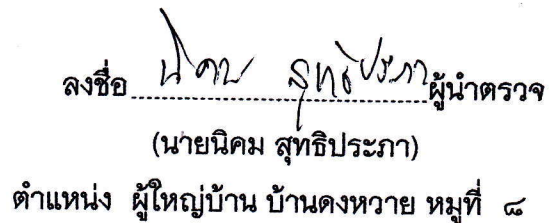 ลงชื่อ นิคม สุทธิประภา ผู้นำตรวจ
(นายนิคม สุทธิประภา)
ตำแหน่ง ผู้ใหญ่บ้าน บ้านดงหวาย หมู่ที่ ๘